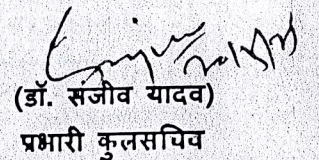 (डॉ. संजीव यादव)
प्रभारी कुलसचिव